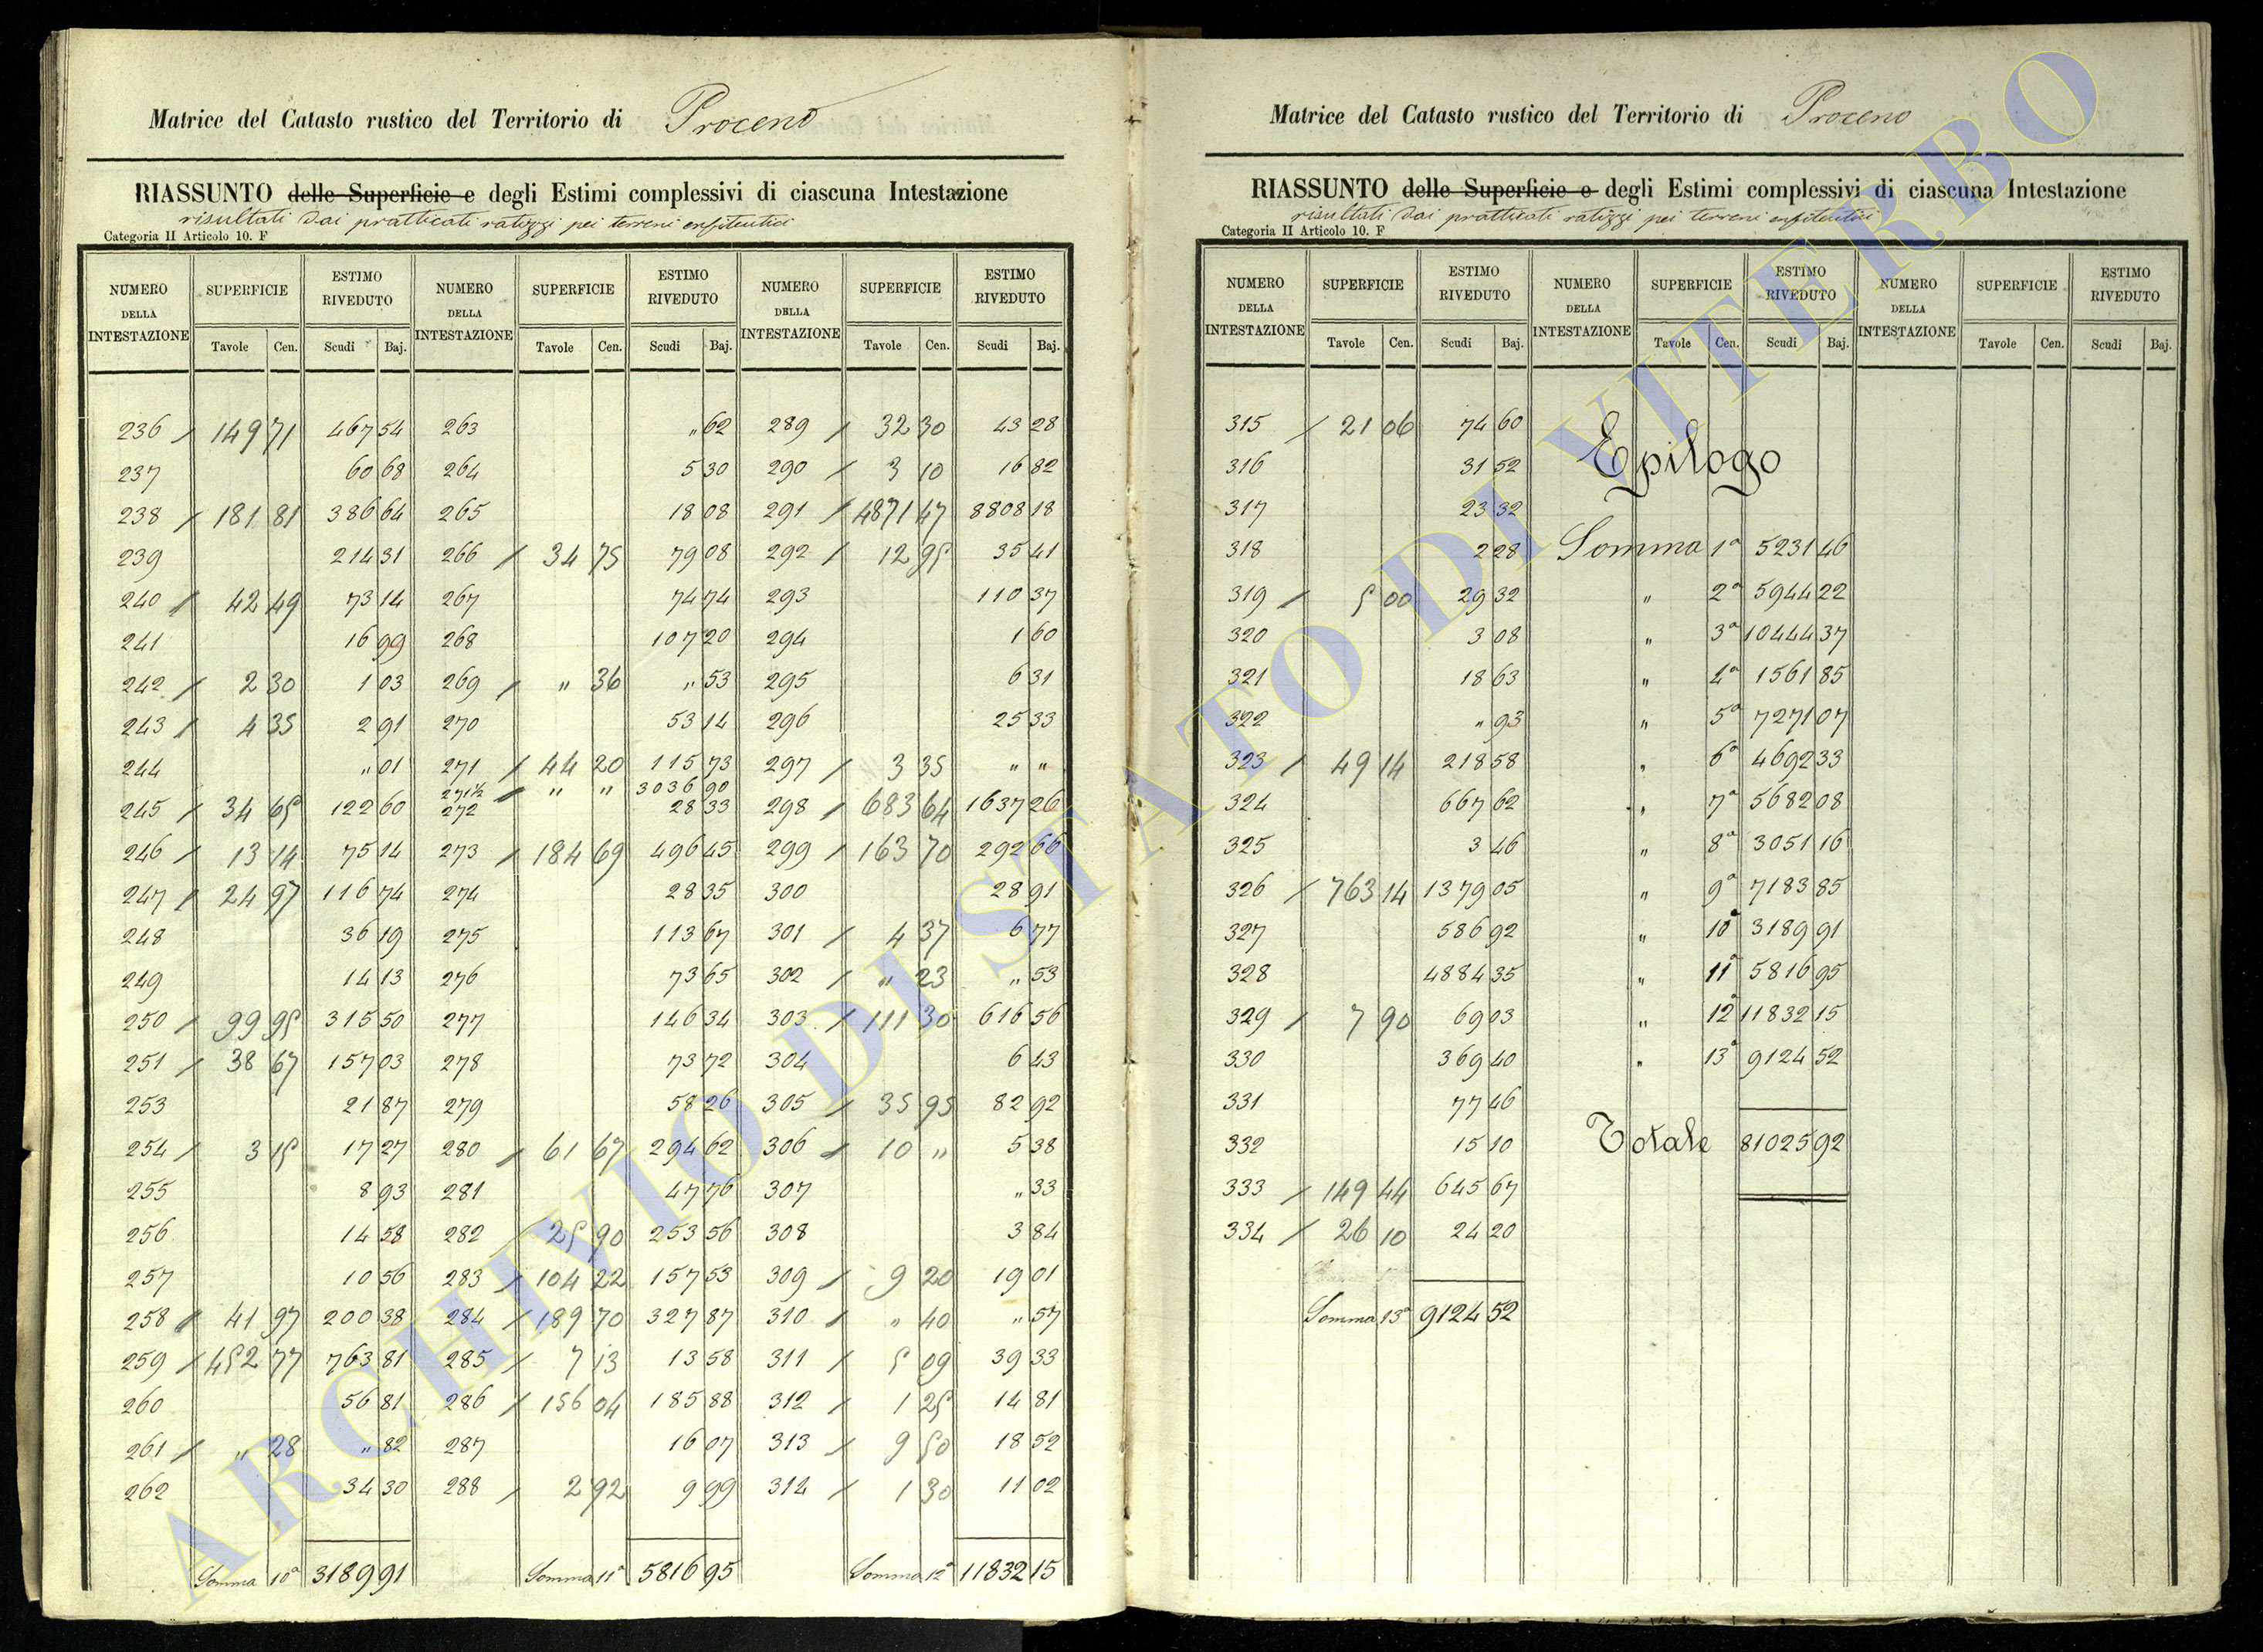 Matrice del Catasto rustico del Territorio di Proceno
RIASSUNTO delle Superficie e degli Estimi complessivi di ciascuna Intestazione
risultati dai pratticati ratizzi pei terreni enfiteutici
Categoria II Articolo 10. F
NUMERO DELLA INTESTAZIONE SUPERFICIE ESTIMO RIVEDUTO NUMERO DELLA INTESTAZIONE SUPERFICIE ESTIMO RIVEDUTO NUMERO DELLA INTESTAZIONE SUPERFICIE ESTIMO RIVEDUTO
Tavole Cen. Scudi Baj. Tavole Cen. Scudi Baj. Tavole Cen. Scudi Baj.
236 / 149 71 467 54 263 „ 62 289 / 32 30 43 28
237 60 68 264 5 30 290 / 3 10 16 82
238 / 181 81 386 64 265 18 08 291 / 4871 47 8808 18
239 214 31 266 / 34 75 79 08 292 / 12 95 35 41
240 / 42 49 73 14 267 74 74 293 110 37
241 16 99 268 107 20 294 1 60
242 / 2 30 1 03 269 / „ 36 „ 53 295 6 31
243 / 4 35 2 91 270 53 14 296 25 33
244 „ 01 271 / 44 20 115 73 297 / 3 35 „ „
271½ / „ „ 3036 90
245 / 34 65 122 60 272 28 33 298 / 683 64 1637 26
246 / 13 14 75 14 273 / 184 69 496 45 299 / 163 70 292 66
247 / 24 97 116 74 274 28 35 300 28 91
248 36 19 275 113 67 301 / 4 37 6 77
249 14 13 276 73 65 302 / „ 23 „ 53
250 / 99 95 315 50 277 146 34 303 / 111 30 616 56
251 / 38 67 157 03 278 73 72 304 6 43
253 21 87 279 58 26 305 / 35 95 82 92
254 / 3 15 17 27 280 / 61 67 294 62 306 / 10 „ 5 38
255 8 93 281 47 76 307 „ 33
256 14 58 282 / 25 90 253 56 308 3 84
257 10 56 283 / 104 22 157 53 309 / 9 20 19 01
258 / 41 97 200 38 284 / 189 70 327 87 310 / „ 40 „ 57
259 / 452 77 763 81 285 / 7 13 13 58 311 / 5 09 39 33
260 56 81 286 / 156 04 185 88 312 / 1 25 14 81
261 / „ 28 „ 82 287 16 07 313 / 9 50 18 52
262 34 30 288 / 2 92 9 99 314 / 1 30 11 02
Somma 10ª 3189 91 Somma 11ª 5816 95 Somma 12ª 11832 15
Matrice del Catasto rustico del Territorio di Proceno
RIASSUNTO delle Superficie e degli Estimi complessivi di ciascuna Intestazione
risultati dai pratticati ratizzi pei terreni enfiteutici
Categoria II Articolo 10. F
NUMERO DELLA INTESTAZIONE SUPERFICIE ESTIMO RIVEDUTO NUMERO DELLA INTESTAZIONE SUPERFICIE ESTIMO RIVEDUTO NUMERO DELLA INTESTAZIONE SUPERFICIE ESTIMO RIVEDUTO
Tavole Cen. Scudi Baj. Tavole Cen. Scudi Baj. Tavole Cen. Scudi Baj.
315 / 21 06 74 60
316 31 52 Epilogo
317 23 32
318 2 28 Somma 1ª 5231 46
319 / 5 00 29 32 „ 2ª 5944 22
320 3 08 „ 3ª 10444 37
321 18 63 „ 4ª 1561 85
322 „ 93 „ 5ª 7271 07
323 / 49 14 218 58 „ 6ª 4692 33
324 667 62 „ 7ª 5682 08
325 3 46 „ 8ª 3051 16
326 / 763 14 1379 05 „ 9ª 7183 85
327 586 92 „ 10ª 3189 91
328 4884 35 „ 11ª 5816 95
329 / 7 90 69 03 „ 12ª 11832 15
330 369 40 „ 13ª 9124 52
331 77 46
332 15 10 Totale 81025 92
333 / 149 44 645 67
334 / 26 10 24 20
Somma 13ª 9124 52
ARCHIVIO DI STATO DI VITERBO